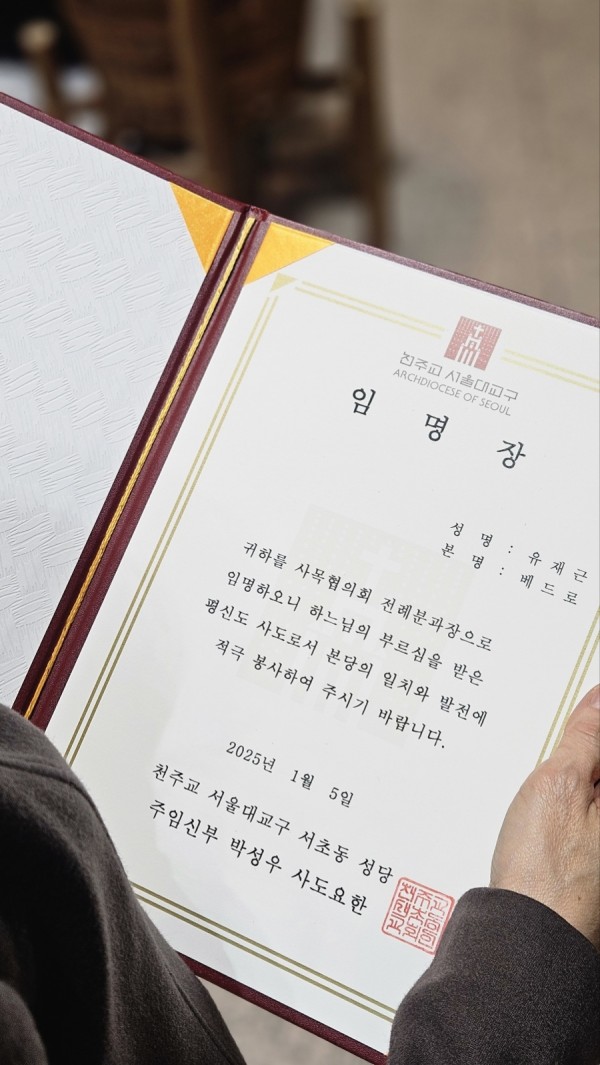 천주교 서울대교구
ARCHDIOCESE OF SEOUL
임 명 장
성 명 : 유 재 근
본 명 : 베 드 로
귀하를 사목협의회 전례분과장으로
임명하오니 하느님의 부르심을 받은
평신도 사도로서 본당의 일치와 발전에
적극 봉사하여 주시기 바랍니다.
2025년 1월 5일
천주교 서울대교구 서초동 성당
주임신부 박성우 사도요한